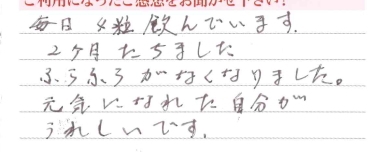 ご利用になったご感想をお聞かせ下さい!
毎日4粒飲んでいます.
2ヶ月たちました
ふらふらがなくなりました。
元気になれた自分が
うれしいです.